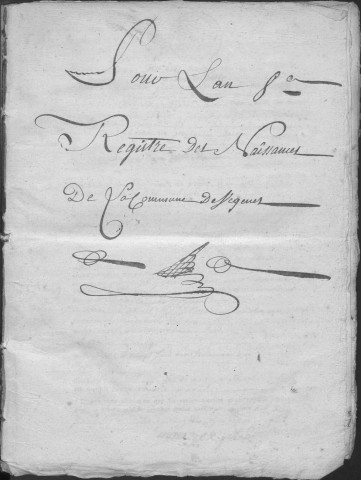 Pour Lan 8e
Registre des Naissances
De La Commune de